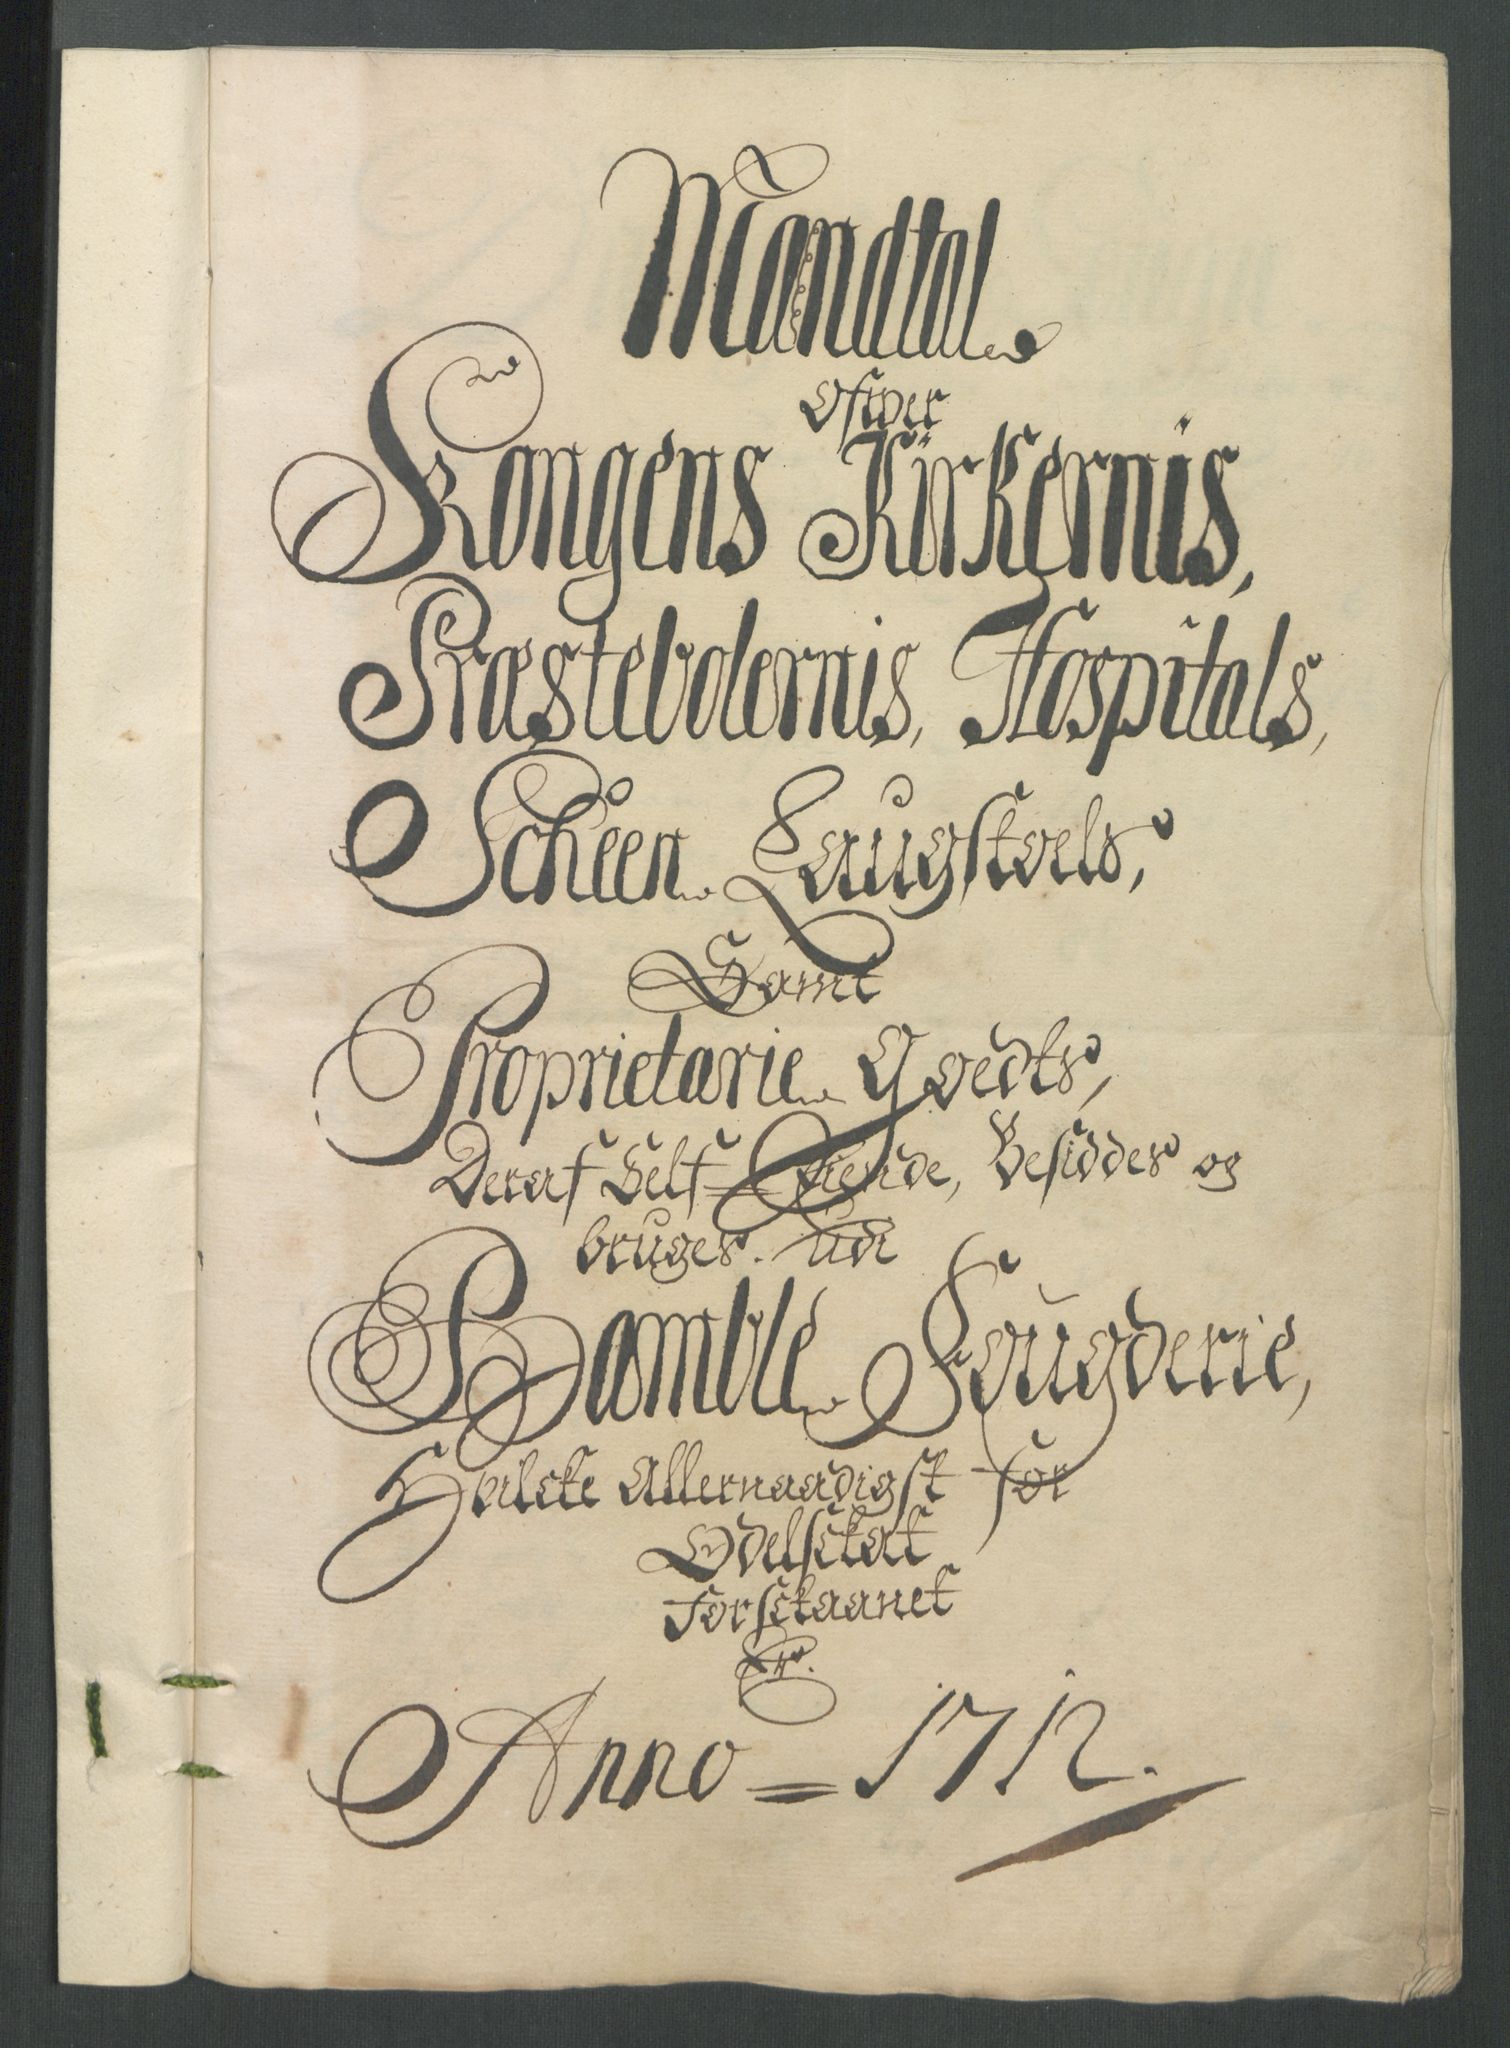 Mandtal
Ofwer
Kongens Kirkernis,
Præstebolernis, Hospitals,
Scheen Laugstoels,
Samt
Proprietarie Goedts,
Deraf Self= Eiende, Besiddes og
bruges. Udi
Bamble Fougderie,
Hvilcke Allernaadigst for
Odelsckat
forsckaanet
Er.
Anno = 1712.